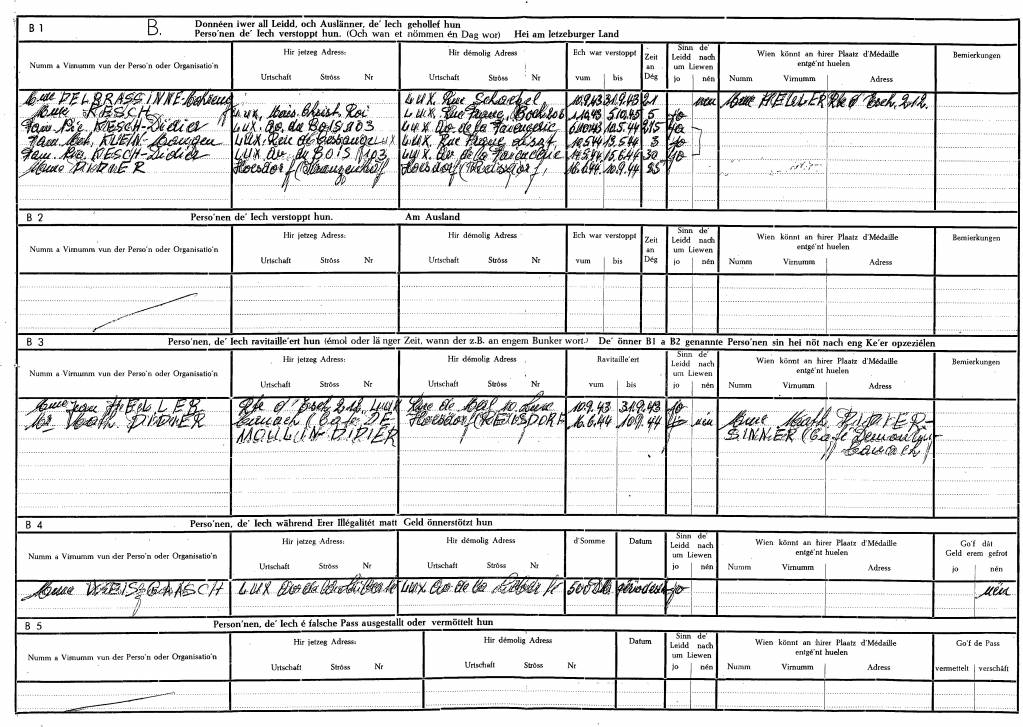 B 1 B. Donnéen iwer all Leidd, och Auslänner, de' Iech gehollef hun
Perso'nen de' Iech verstoppt hun. (Och wan et nömmen én Dag wor) Hei am letzeburger Land
Numm a Virnumm vun der Perso'n oder Organisatio'n
Hir jetzeg Adress:
Urtschaft Ströss Nr
Hir démolig Adress
Urtschaft Ströss Nr
Ech war verstoppt
vum bis
Zeit an Dég
Sinn de' Leidd nach um Liewen
jo nén
Wien könnt an hirer Plaatz d'Médaille entgé'nt huelen
Numm Virnumm Adress
Bemierkungen
Mme DELBRASSINNE LUX. Rue 10.9.43 31.9.43 21 nén Mme HELLER Rte d'Esch, 212.
Mme RESCH LUX. Christ Roi LUX. Rue 1.10.43 5.10.43 5 jo
Fam. RESCH-Didier LUX. Av. du Bois 103 LUX. Av. de la Faiencerie 10.5.44 215 jo
Fam. KLEIN LUX. LUX. Rue 10.5.44 13.5.44 3 jo
Fam. RESCH-Didier LUX. Av. du BOIS 103 LUX. Av. de la Faiencerie 14.5.44 15.6.44 30 jo
Mme DIDIER Hoesdorf Hoesdorf (Reisdorf) 16.6.44 10.9.44 85
B 2 Perso'nen de' Iech verstoppt hun. Am Ausland
Numm a Virnumm vun der Perso'n oder Organisatio'n
Hir jetzeg Adress:
Urtschaft Ströss Nr
Hir démolig Adress
Urtschaft Ströss Nr
Ech war verstoppt
vum bis
Zeit an Dég
Sinn de' Leidd nach um Liewen
jo nén
Wien könnt an hirer Plaatz d'Médaille entgé'nt huelen
Numm Virnumm Adress
Bemierkungen
B 3 Perso'nen, de' Iech ravitaille'ert hun (émol oder lä nger Zeit, wann der z.B. an engem Bunker wort.) De' önner B1 a B2 genannte Perso'nen sin hei nöt nach eng Ke'er opzeziélen
Numm a Virnumm vun der Perso'n oder Organisatio'n
Hir jetzeg Adress:
Urtschaft Ströss Nr
Hir démolig Adress
Urtschaft Ströss Nr
Ravitaille'ert
vum bis
Sinn de' Leidd nach um Liewen
jo nén
Wien könnt an hirer Plaatz d'Médaille entgé'nt huelen
Numm Virnumm Adress
Bemierkungen
Mme HELLER Rte d'Esch 212, LUX Rue de 10.9.43 31.9.43 jo
Mr Math. DIDIER Canach (Café DE Hoesdorf (REISDORF 16.6.44 10.9.44 nén Mme Math. DIDIER-
MOULIN-DIDIER SINNER (Café
Canach)
B 4 Perso'nen, de' Iech während Erer Illégalitét matt Geld önnerstötzt hun
Numm a Virnumm vun der Perso'n oder Organisatio'n
Hir jetzeg Adress:
Urtschaft Ströss Nr
Hir démolig Adress
Urtschaft Ströss Nr
d'Somme
Datum
Sinn de' Leidd nach um Liewen
jo nén
Wien könnt an hirer Plaatz d'Médaille entgé'nt huelen
Numm Virnumm Adress
Go'f dât Geld erem gefrot
jo nén
Mme LUX Av. de la Liberté LUX. Av. de la Liberté jo nén
B 5 Person'nen, de' Iech é falsche Pass ausgestallt oder vermöttelt hun
Numm a Virnumm vun der Perso'n oder Organisatio'n
Hir jetzeg Adress:
Urtschaft Ströss Nr
Hir démolig Adress:
Urtschaft Ströss Nr
Datum
Sinn de' Leidd nach um Liewen
jo nén
Wien könnt an hirer Plaatz d'Médaille entgé'nt huelen
Numm Virnumm Adress
Go'f de Pass
vermettelt verschâft